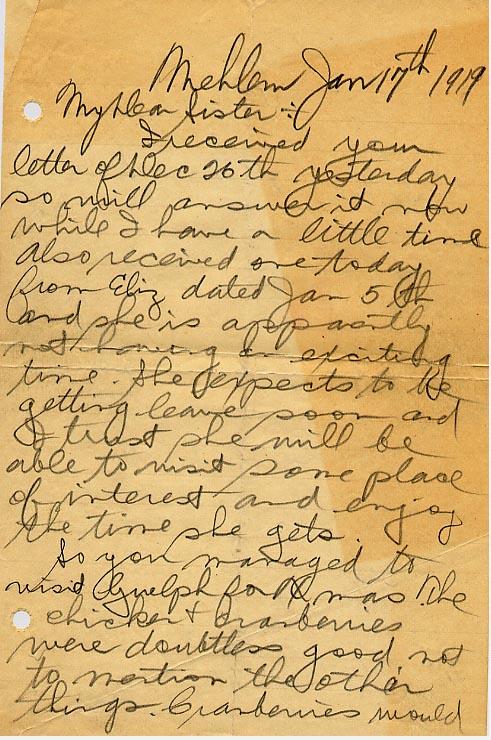 Mehlem Jan 17th 1919
My Dear Sister :-
I received your
letter of Dec 26th yesterday
so will answer it now
while I have a little time
also received one today
from Eliz dated Jan 5th
and she is appartly
not having an exciting
time. She expects to be
getting leave soon and
I trust she will be
able to visit some place
of interest and enjoy
the time she gets.
So you managed to
visit Guelph for Xmas. The
chicken & cranberries
were doubtless good not
to mention the other
things. Cranberries would